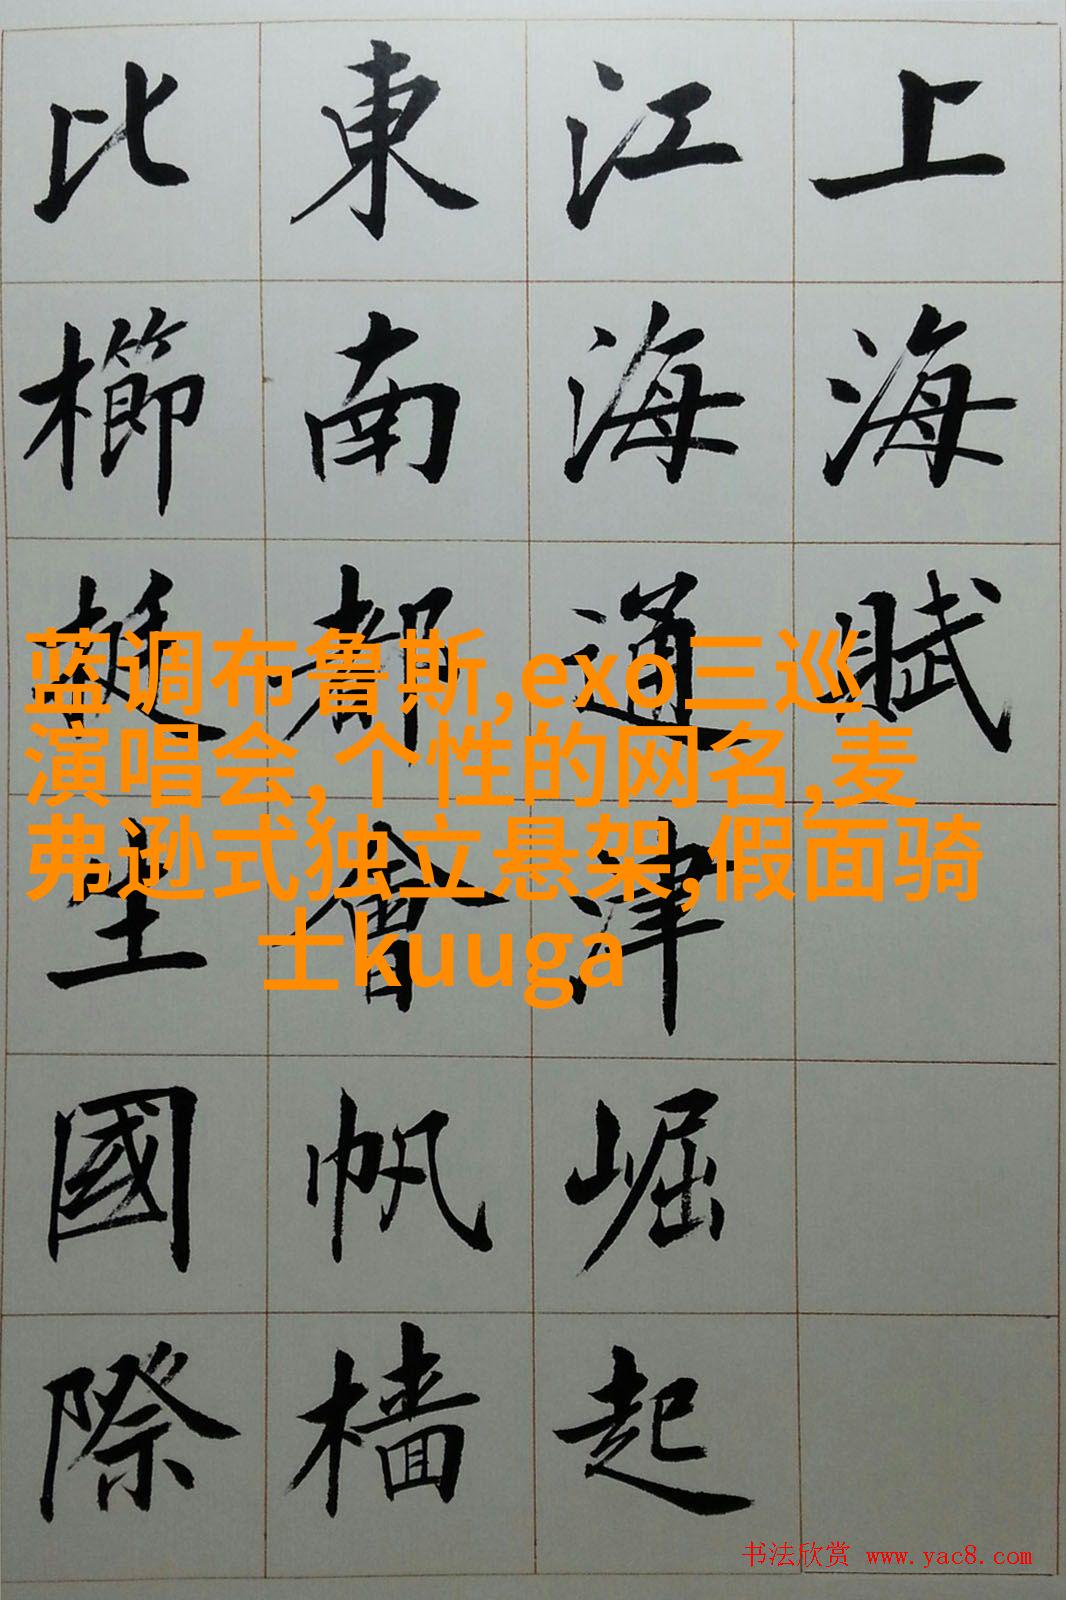 上海賦
江海通津崛起
東南都會帆檣
比櫛挺生國際
蓝调布鲁斯,exo三巡
演唱会,个性的网名,麦
弗逊式独立悬架,假面骑
士kuuga
书法欣赏 www.yac8.com